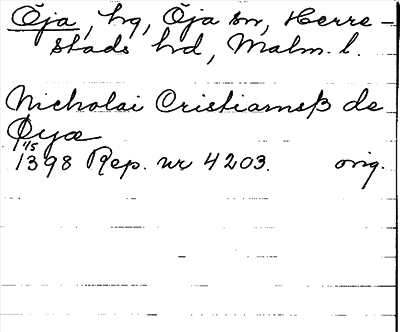 Öja, hg, Öja sn, Herre-
stads hd, Malm. l.
Nicholai Cristiernsß de
Øyæ
1/5
1398 Rep. nr 4203. orig.